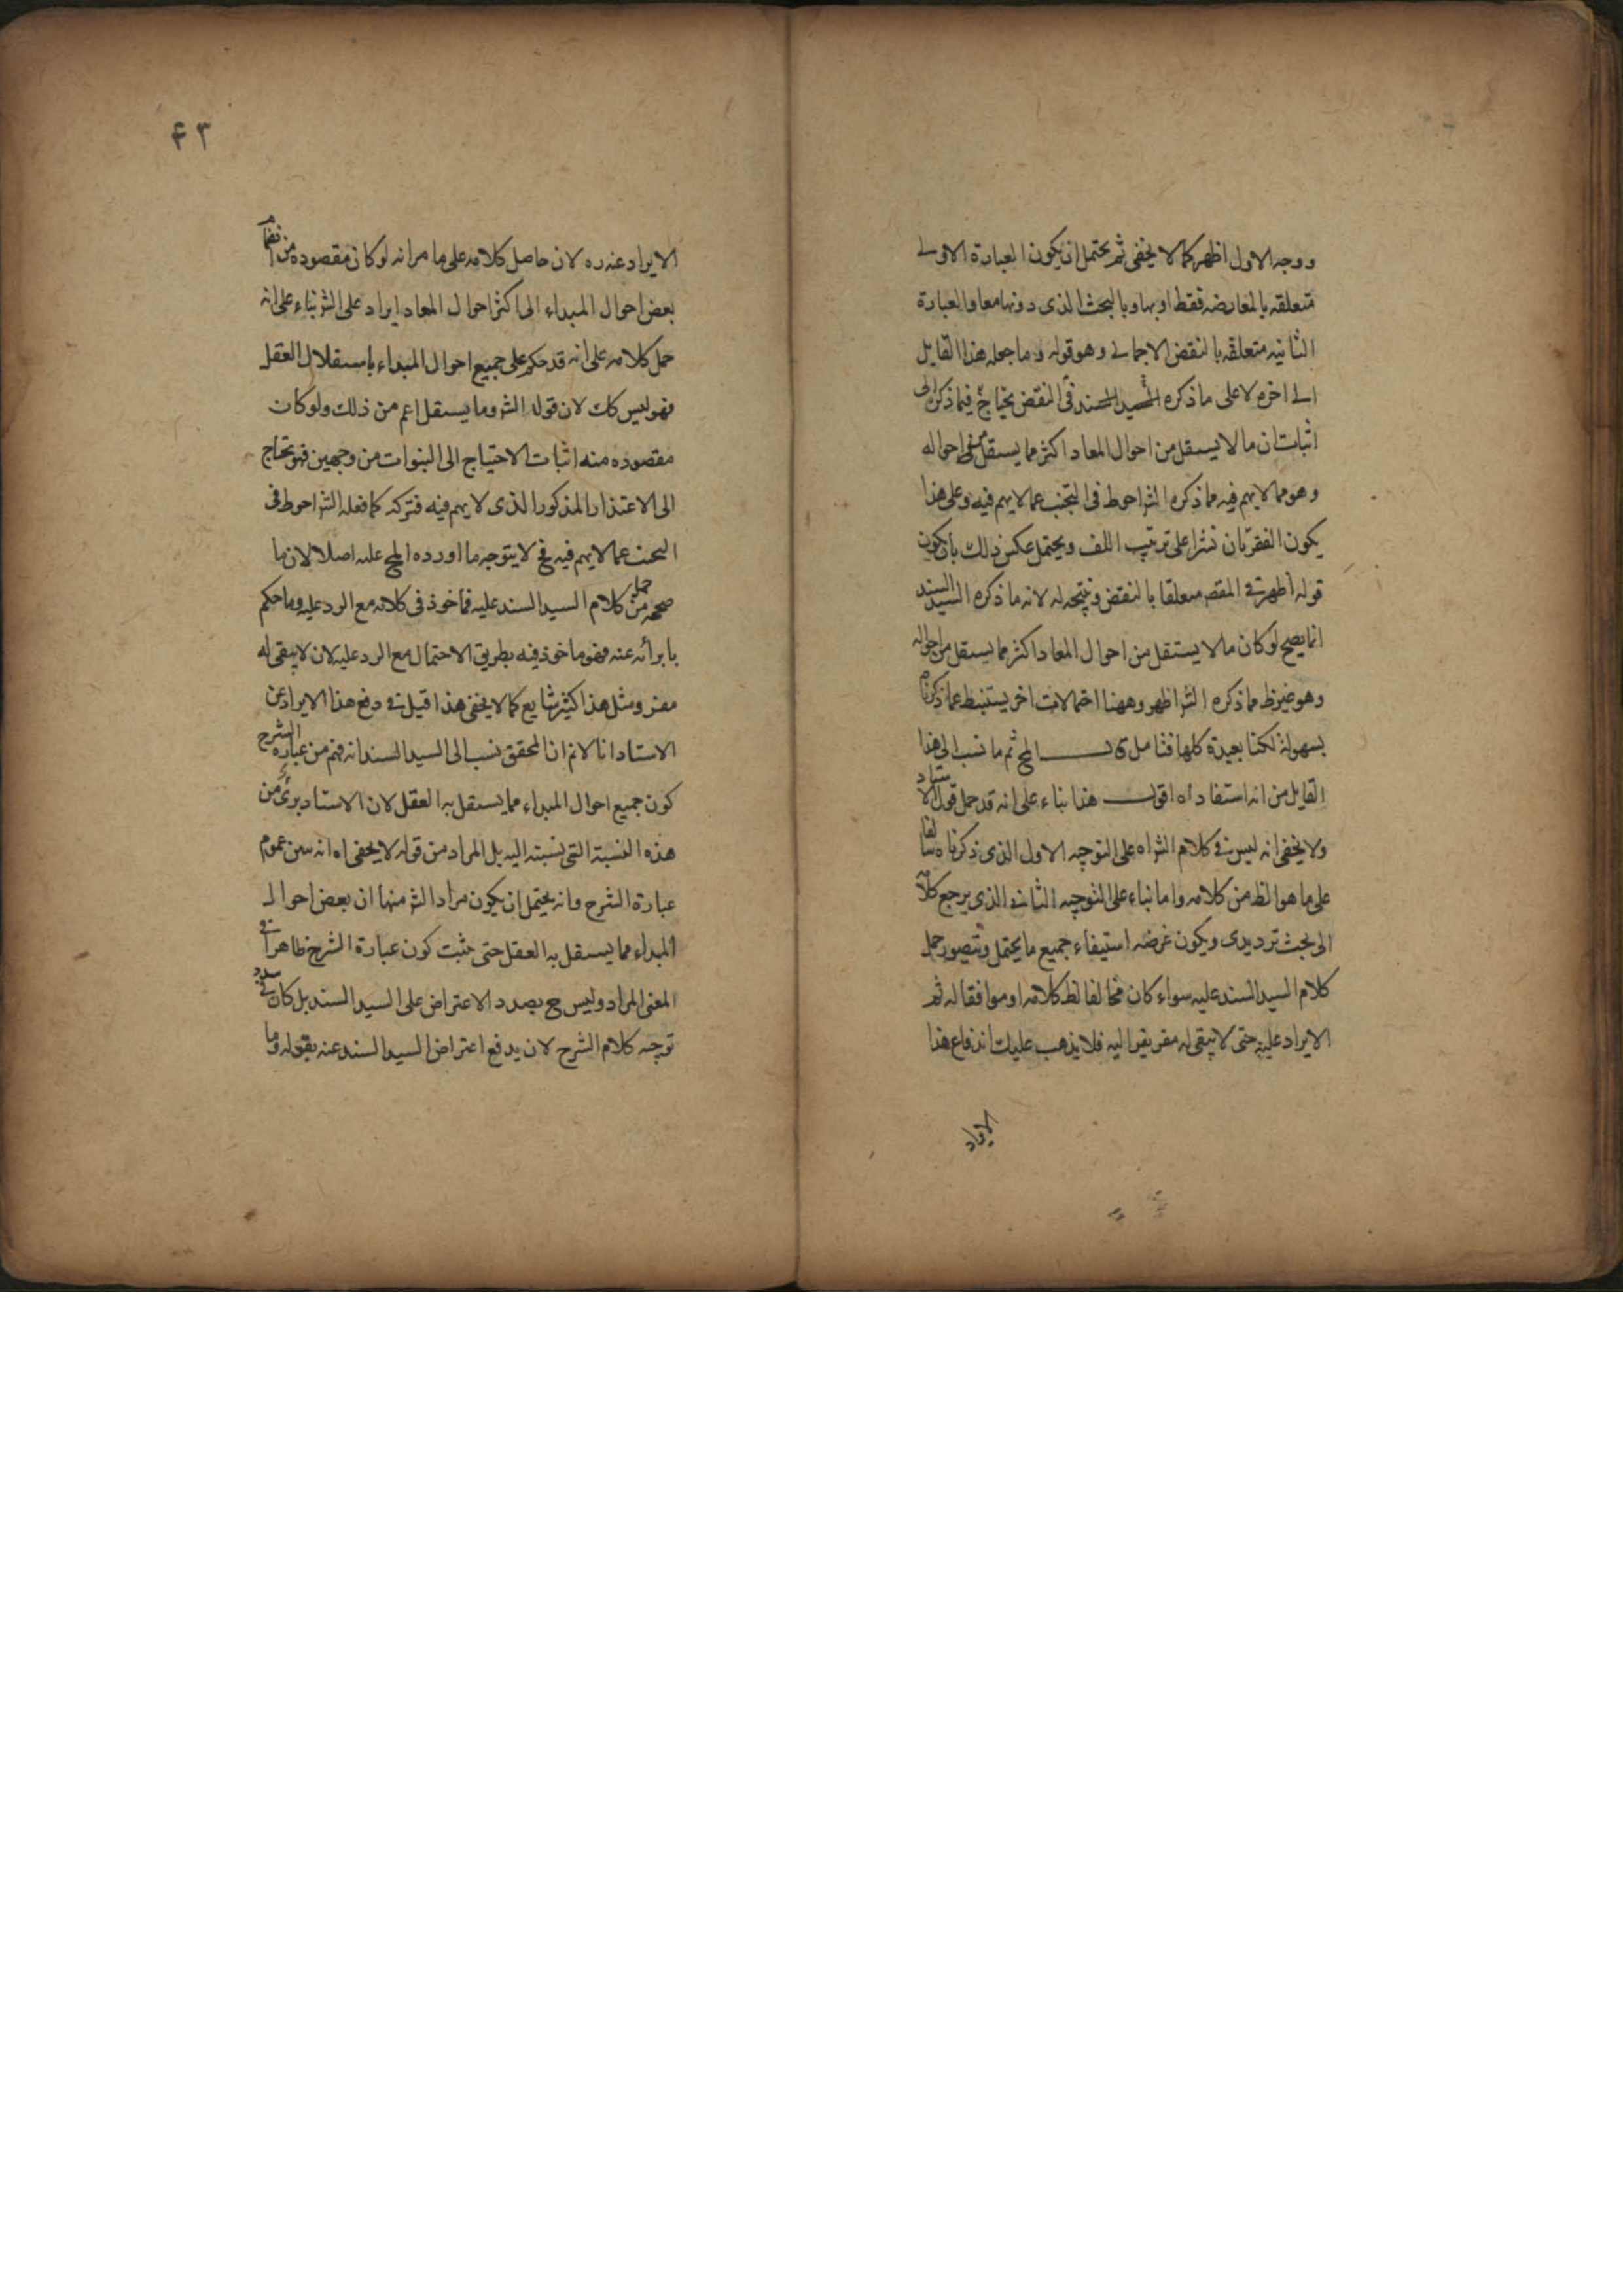 ووجه الاول اظهر كما لا يخفى ثم يحتمل ان يكون العبارة الاولى
متعلقه بالمعارضه فقط او بها وبالبحث الذى دونها معا والعبارة
الثانيه متعلقه بالنقض الاجمالى وهو قوله وما جعله هذا القايل
الى اخره لا على ما ذكره السيد السند فى النقض يحتاج فيما ذكر الى
اثبات ان ما لا يستقل من احوال المعاد اكثر مما يستقل من احواله
وهو مما لا يهم فيه فما ذكره الش احوط فى التجنب عما لا يهم فيه وعلى هذا
يكون الفقرتان نشرا على ترتيب اللف ويحتمل عكس ذلك بان يكون
قوله اظهر فى المقص متعلقا بالنقض ونتيجه له لانه ما ذكره السيد السند
انما يصح لو كان ما لا يستقل من احوال المعاد اكثر مما يستقل من احواله
وهو فما ذكره الش اظهر وههنا احتمالات اخر يستنبط مما ذكرنا
بسهولة لكنها بعيدة كلها فتامل قال المح ثم ما نسب الى هذا
القايل من انه استفاد اه اقول هذا بناء على انه قد حمل قول الاستاد
ولا يخفى انه ليس فى كلام الش اه على التوجيه الاول الذى ذكرناه
على ما هو الظ من كلامه واما بناء على التوجيه الثانى الذى يرجع كلامه
الى بحث ترديدى ويكون غرضه استيفاء جميع ما يحتمل ويتصور حمل
كلام السيد السند عليه سواء كان مخالفا لظ كلامه او موافقا له ثم
الايراد عليه حتى لا يبقى له مفر يفر اليه فلا يذهب عليك اندفاع هذا
الايراد
٤٣
الايراد عنه ره لان حاصل كلامه على ما مر انه لو كان مقصوده من
بعض احوال المبداء الى اكثر احوال المعاد ايراد على الش بناء على انه
حمل كلامه على انه قد حكم على جميع احوال المبداء باستقلال العقل
فهو ليس كك لان قوله الش وما يستقل اعم من ذلك ولو كان
مقصوده منه اثبات الاحتياج الى النبوات من وجهين فهو يحتاج
الى الاعتذار المذكور الذى لا يهم فيه فتركه كما فعله الش احوط فى
البحث عما لا يهم فيه فح لا يتوجه ما اورده المح عليه اصلا لان ما
صححه من حمل كلام السيد السند عليه فماخوذ فى كلامه مع الرد عليه وما حكم
بابرائه عنه فهو ماخوذ فيه بطريق الاحتمال مع الرد عليه لان لا يبقى له
مفر ومثل هذا كثير شايع كما لا يخفى هذا قيل فى دفع هذا الايراد عن
الاستاد انا لا نم ان المحقق نسب الى السيد السند انه فهم من عبارة الشرح
كون جميع احوال المبداء مما يستقل به العقل لان الاستاد برئ من
هذه النسبة التى نسبته اليه بل المراد من قوله لا يخفى اه انه بين عموم
عبارة الشرح وانه يحتمل ان يكون مراد الش منها ان بعض احوال
المبداء مما يستقل به العقل حتى يثبت كون عبارة الشرح ظاهرا فى
المعنى المراد وليس ح بصدد الاعتراض على السيد السند بل كان فى صدد
توجيه كلام الشرح لان يدفع اعتراض السيد السند عنه بقوله وما